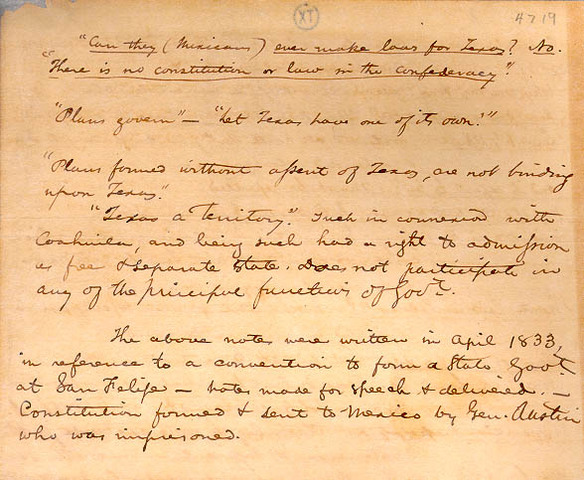 XT
4719
"Can they (Mexicans) ever make laws for Texas? No.
"There is no constitution or law in the confederacy".
"Plans govern" — "Let Texas have one of its own!"
"Plans formed without assent of Texas, are not binding
upon Texas".
"Texas a Territory". Such in connexion with
Coahuila, and being such had a right to admission
as free & separate State. Does not participate in
any of the principal functions of Govt.
The above notes were written in April 1833,
in reference to a convention to form a State Govt
at San Felipe — notes made for speech & delivered. —
Constitution formed & sent to Mexico by Gen. Austin
who was imprisoned.